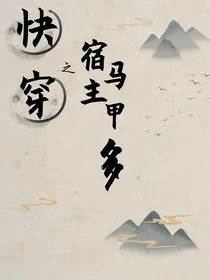 快穿
之
宿主马甲多